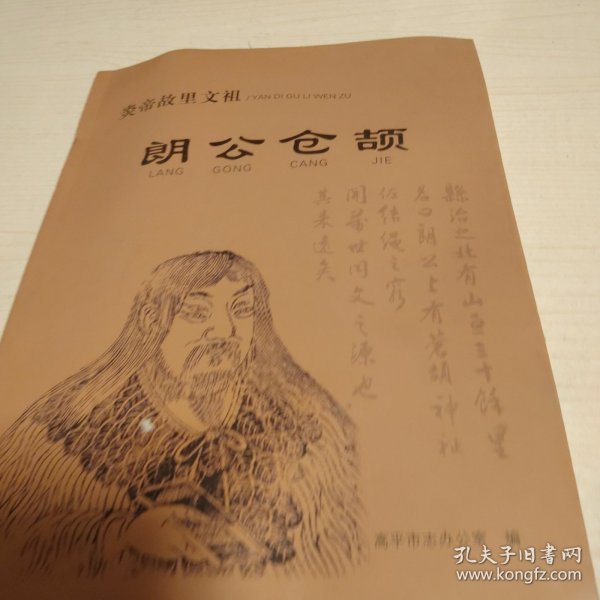 炎帝故里文祖 / YAN DI GU LI WEN ZU
朗公仓颉
LANG GONG CANG JIE
縣治之北有山焉三十餘里
名曰朗公上有蒼頡神祠
代結繩之窮
開萬世同文之源也
其来遠矣
高平市志办公室 编
孔夫子旧书网
www.kongfz.com